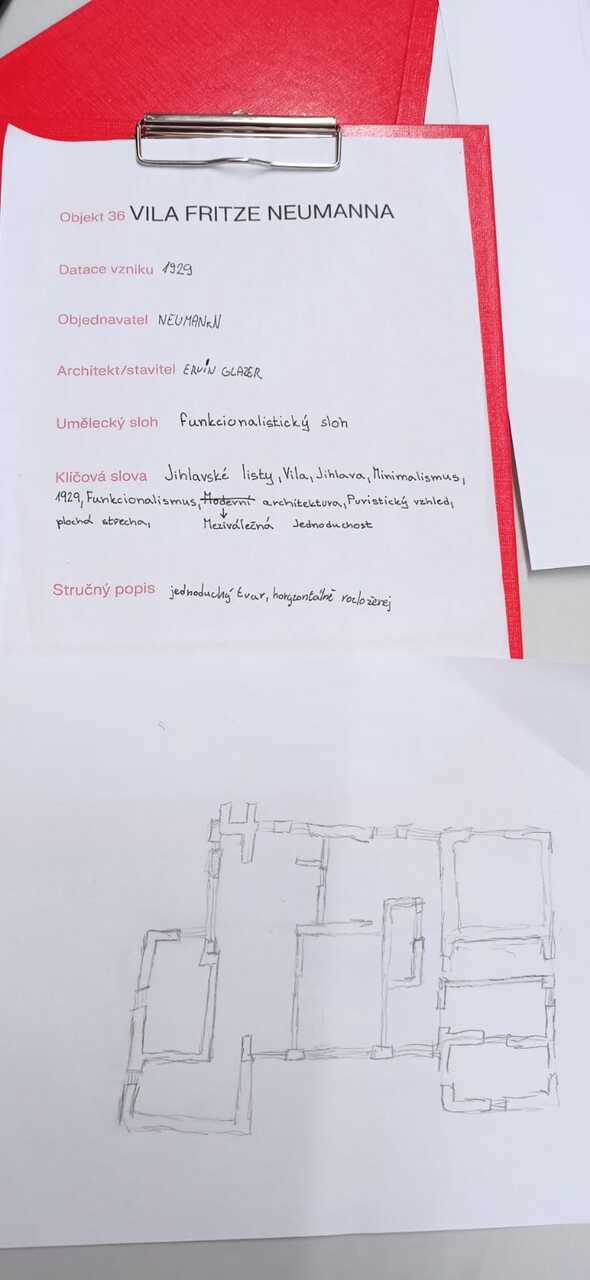 Objekt 36 VILA FRITZE NEUMANNA
Datace vzniku 1929
Objednavatel NEUMANN
Architekt/stavitel ERVÍN GLAZER
Umělecký sloh funkcionalistický sloh
Klíčová slova Jihlavské listy, Vila, Jihlava, Minimalismus,
1929, Funkcionalismus, Moderní architektura, Puristický vzhled,
plochá střecha, Meziválečná Jednoduchost
Stručný popis jednoduchý tvar, horyzontálně rozložený